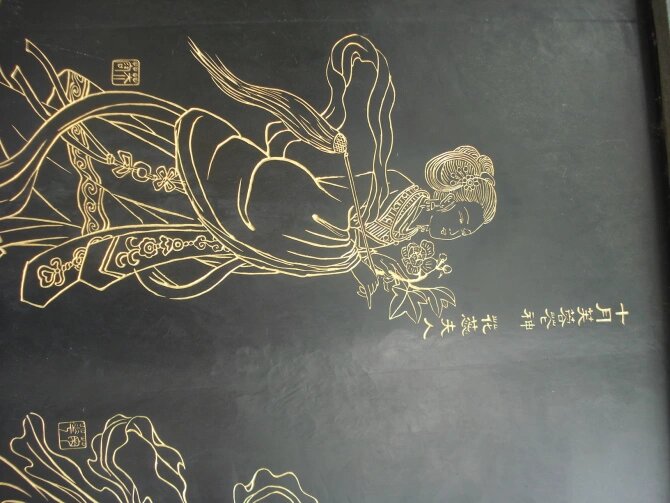 十月芙蓉花神
花蕊夫人